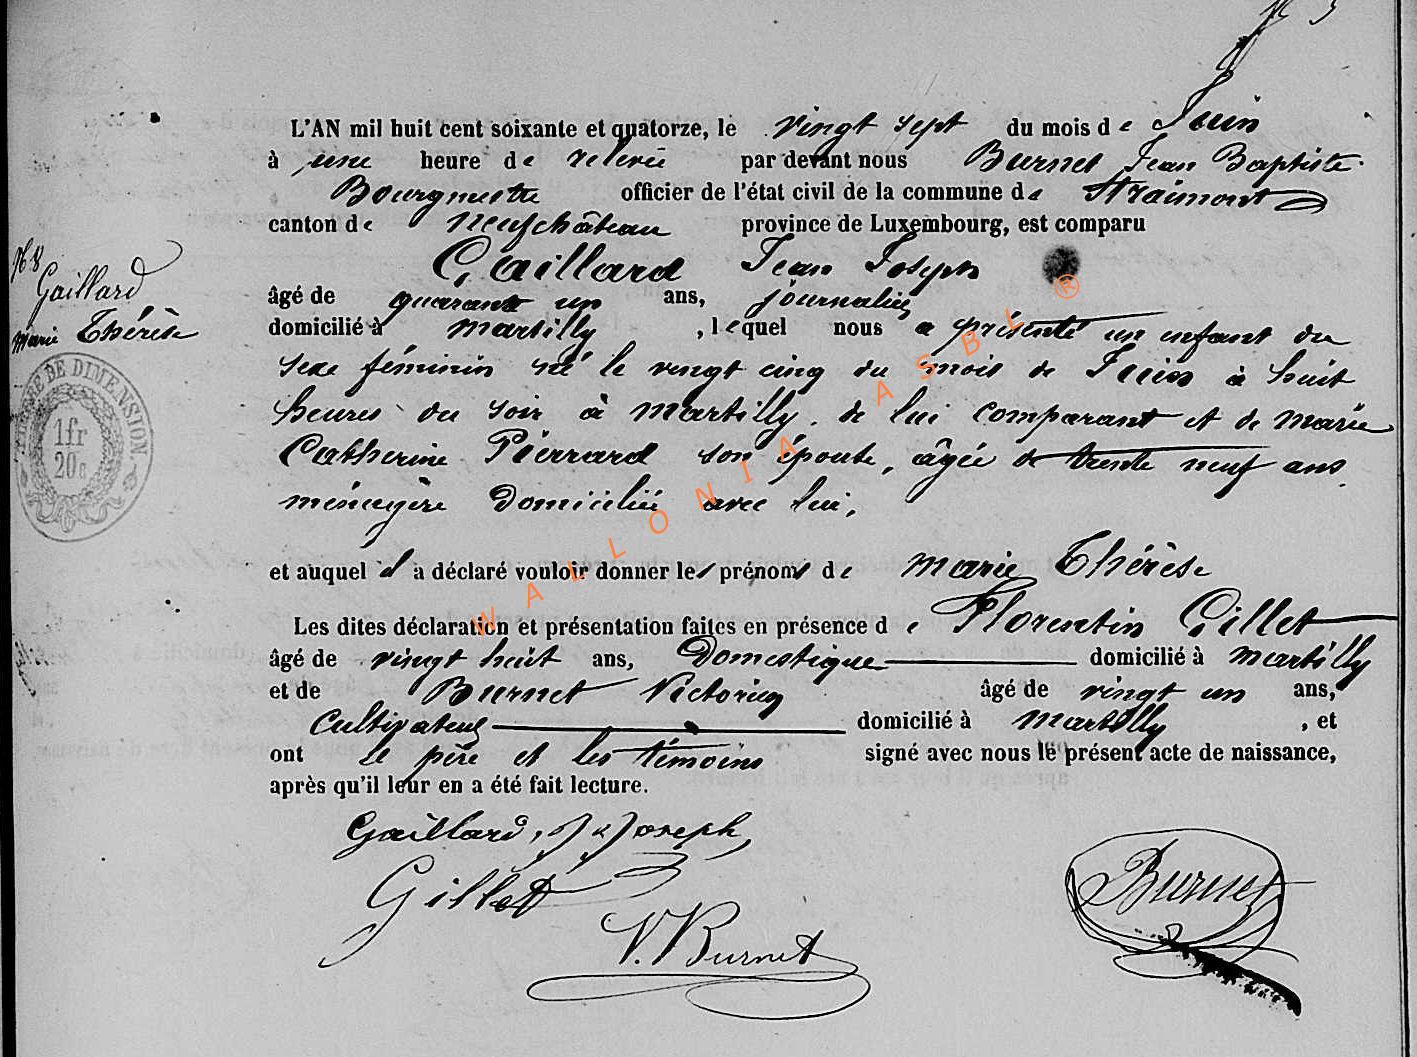 L'AN mil huit cent soixante et quatorze, le vingt sept du mois de Juin
à une heure de relevée par devant nous Burnet Jean Baptiste
Bourgmestre officier de l'état civil de la commune de Straimont
canton de Neufchâteau province de Luxembourg, est comparu
Gaillard Jean Joseph
âgé de quarante un ans, journalier
domicilié à Martilly, lequel nous a présenté un enfant du
sexe féminin né le vingt cinq du mois de Juin à huit
heures du soir à Martilly, de lui comparant et de Marie
Catherine Pierrard son épouse, âgée de trente neuf ans
ménagère domiciliée avec lui,
et auquel il a déclaré vouloir donner les prénoms de Marie Thérèse
Les dites déclaration et présentation faites en présence de Florentin Gillet
âgé de vingt huit ans, Domestique domicilié à Martilly
et de Burnet Victorien âgé de vingt un ans,
Cultivateur domicilié à Martilly, et
ont le père et les témoins signé avec nous le présent acte de naissance,
après qu'il leur en a été fait lecture.
Gaillard, J J Joseph
Gillet
V. Burnet
Burnet
N° 8
Gaillard
Marie Thérèse
TIMBRE DE DIMENSION
1fr
20c
WALLONIA ASBL ®